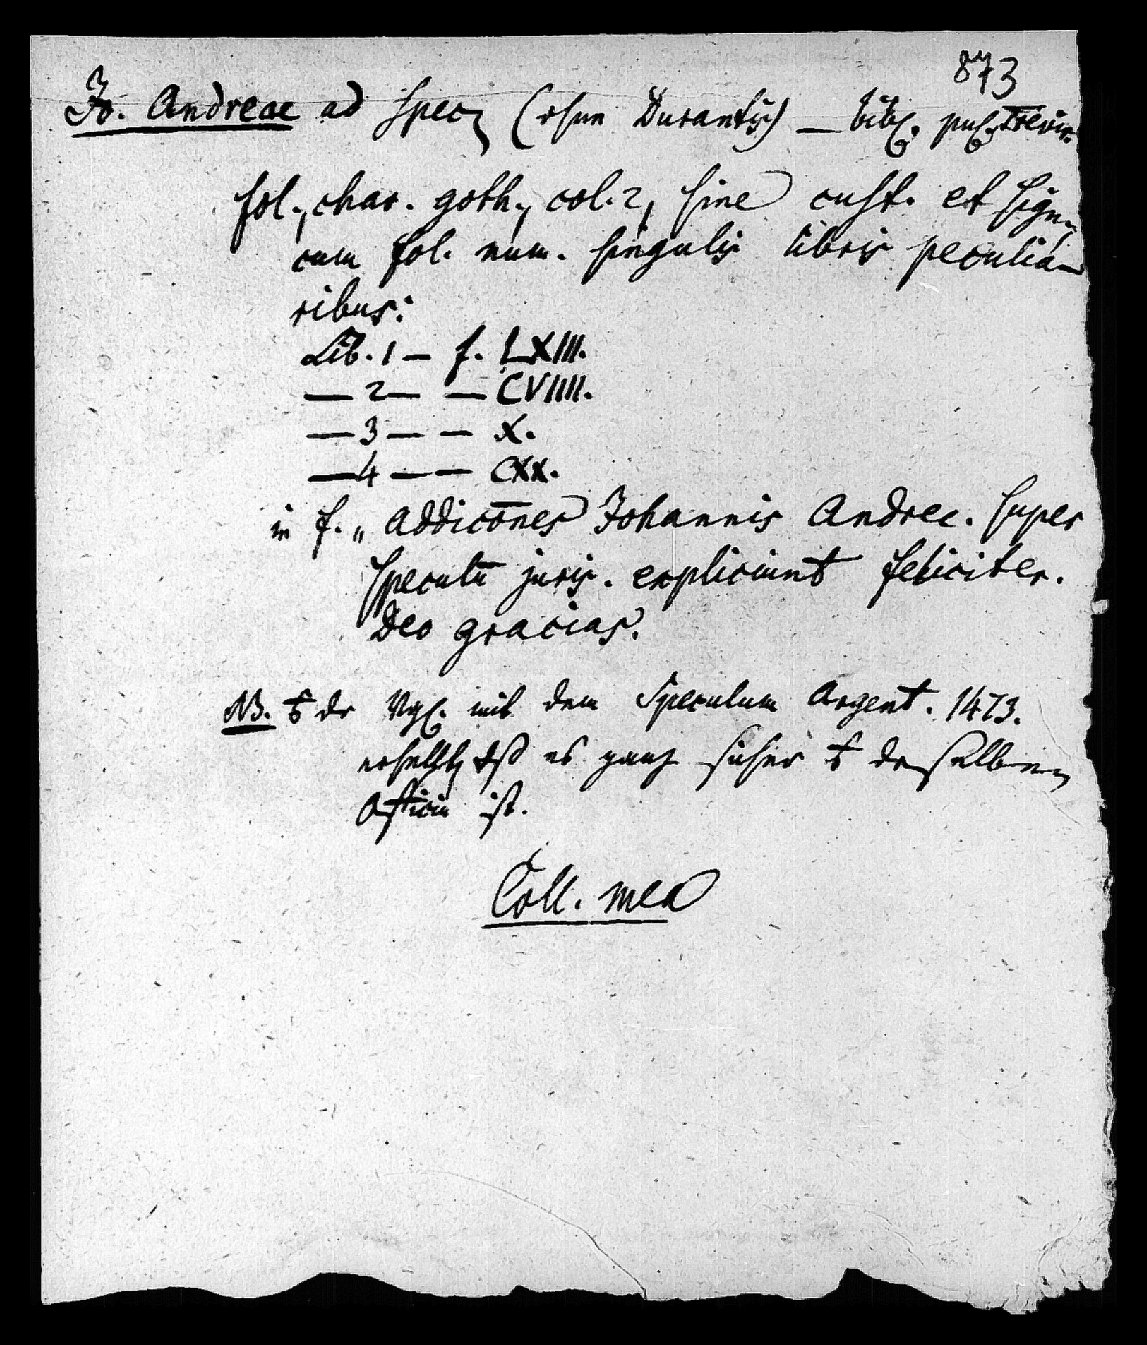 873
Jo. Andreae ad Spec. (ohne Durantis) — bibl. publ. Trevir.
fol., char. goth., col. 2, sine cust. et sign.,
cum fol. num. singulis libris peculia-
ribus:
Lib. 1 — f. LXIII.
— 2 — — CVIIII.
— 3 — — X.
— 4 — — CXX.
in f. „ Addicōnes Johannis Andree. super
speculū juris. expliciunt feliciter.
Deo gracias.
NB. dr Vgl. mit dem Speculum Argent. 1473.
erhellt, dß es ganz sicher derselben
Officin ist.
Coll. mea